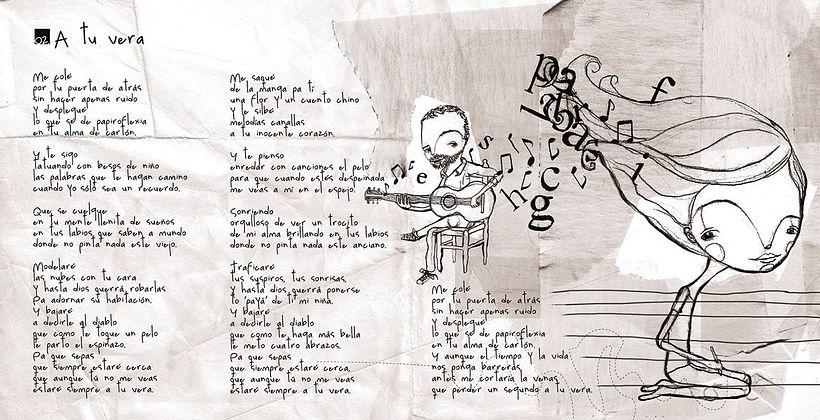 02 A tu vera
Me colé
por tu puerta de atrás
sin hacer apenas ruido
Y desplegué
lo que sé de papiroflexia
en tu alma de cartón.
Y te sigo
tatuando con besos de niño
las palabras que te hagan camino
cuando yo sólo sea un recuerdo.
Que se cuelgue
en tu mente llenita de sueños
en tus labios que saben a mundo
donde no pinta nada este viejo.
Modelaré
las nubes con tu cara
y hasta dios querrá robarlas
Pa adornar su habitación.
Y bajaré
a decirle al diablo
que como te toque un pelo
le parto el espinazo.
Pa que sepas
que siempre estaré cerca
que aunque tú no me veas
estaré siempre a tu vera.
Me saqué
de la manga pa ti
una flor y un cuento chino
Y te silbé
melodías canallas
a tu inocente corazón.
Y te pienso
enredar con canciones el pelo
para que cuando estés despeinada
me veas a mí en el espejo.
Sonriendo
orgulloso de ver un trocito
de mi alma brillando en tus labios
donde no pinta nada este anciano.
Traficaré
tus suspiros, tus sonrisas,
y hasta dios querrá ponerse
to payá de ti mi niña.
Y bajaré
a decirle al diablo
que como te haga más bella
le meto cuatro abrazos.
Pa que sepas
que siempre estaré cerca
que aunque tú no me veas
estaré siempre a tu vera.
Me colé
por tu puerta de atrás
sin hacer apenas ruido
Y desplegué
lo que sé de papiroflexia
en tu alma de cartón.
Y aunque el tiempo y la vida
nos ponga barreras
antes me cortaría la venas
que perder un segundo a tu vera.